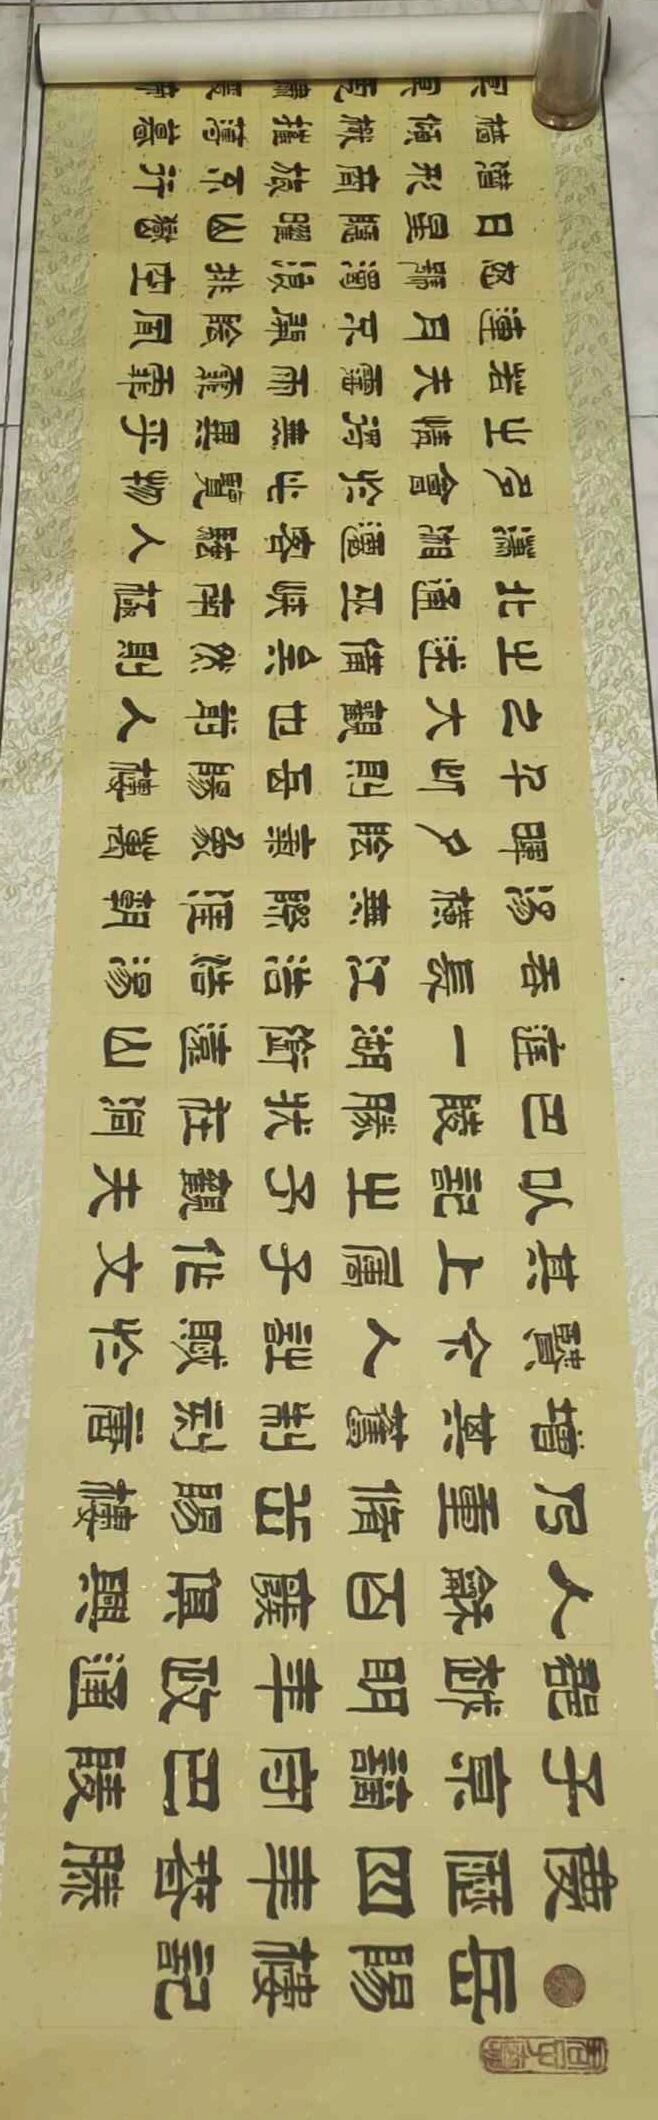 岳陽樓記
慶歷四年春滕
子京謫守巴陵
郡越明年政通
人和百廢俱興
乃重脩岳陽樓
增其舊制刻唐
賢今人詩賦於
其上屬予作文
以記之予觀夫
巴陵勝狀在洞
庭一湖銜遠山
吞長江浩浩湯
湯橫無際涯朝
暉夕陰氣象萬
千此則岳陽樓
之大觀也前人
之述備矣然則
北通巫峽南極
瀟湘遷客騷人
多會於此覽物
之情得無異乎
若夫霪雨霏霏
連月不開陰風
怒號濁浪排空
日星隱曜山嶽
潛形商旅不行
檣傾楫摧薄暮
冥冥虎嘯猿啼